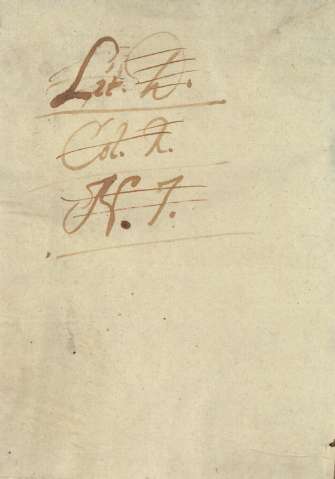 Lit. h.
Col. h.
N. 7.